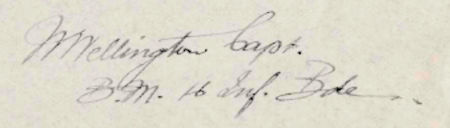 Wellington Capt.
B.M. 16 Inf. Bde